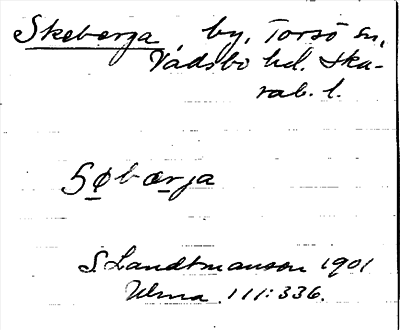 Skeberga by, Torsö sn,
Vadsbo hd. Ska-
rab. l.
Søbærja
S. Landtmanson 1901
Ulma 111:336.